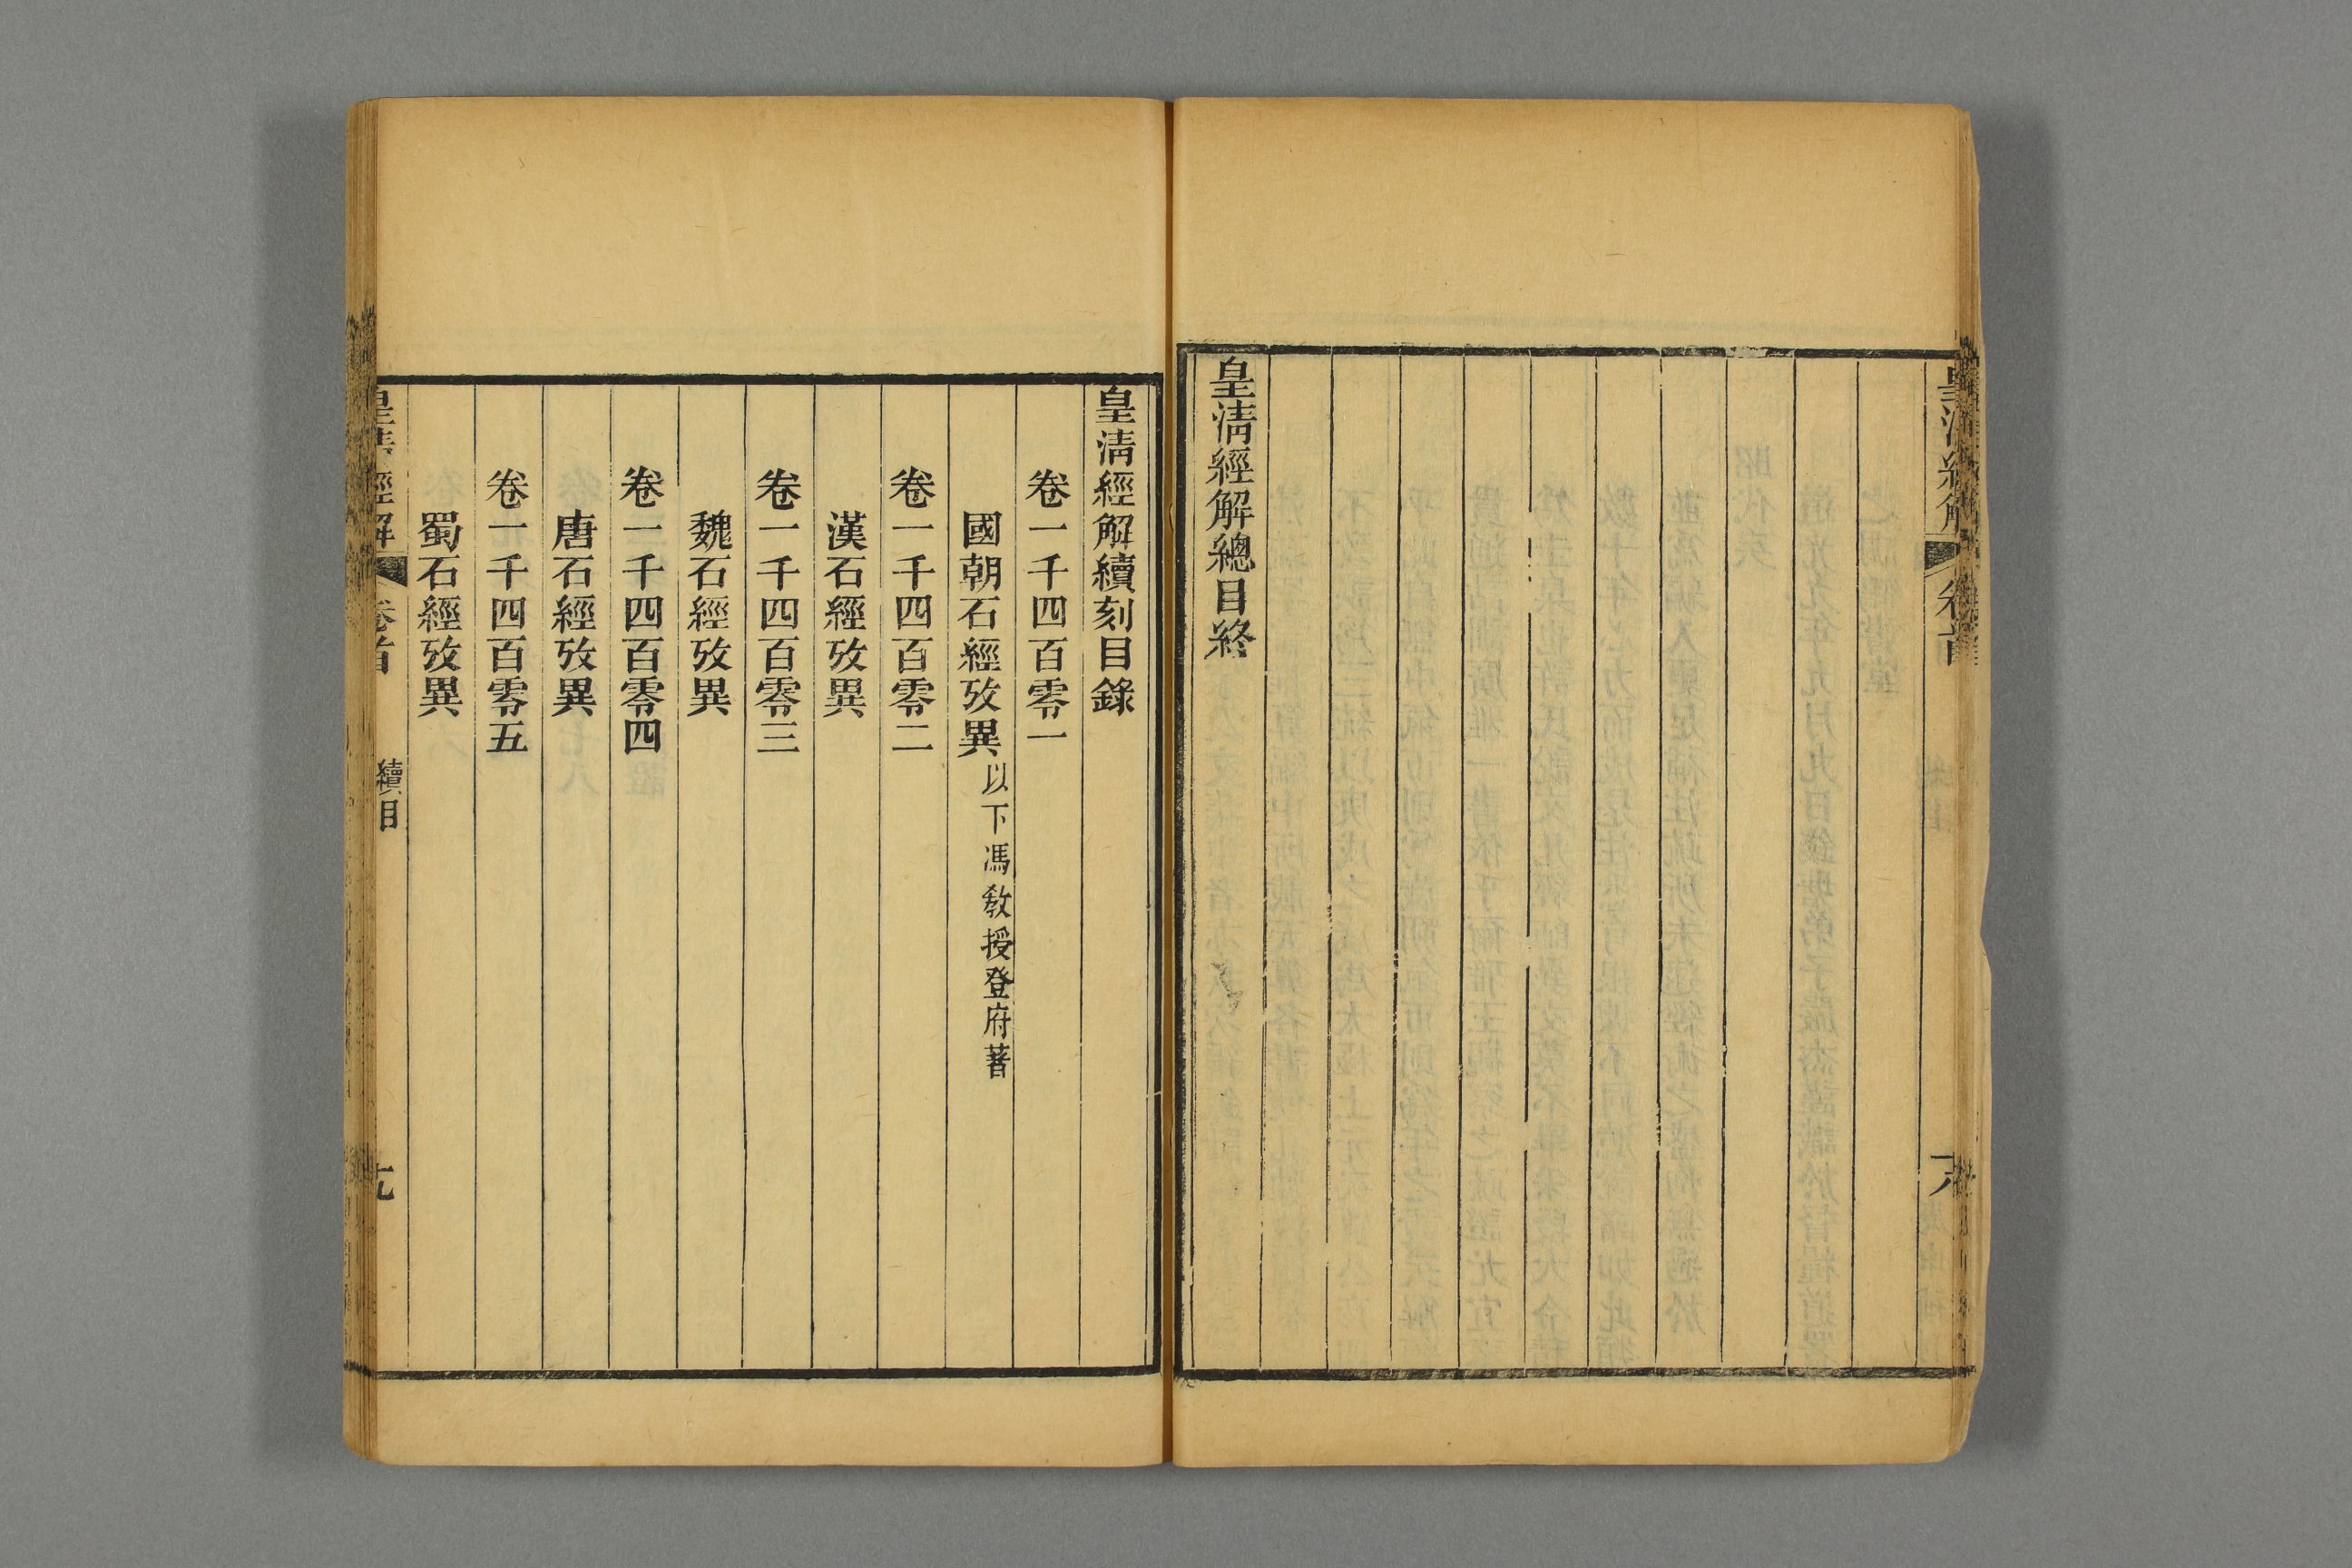 皇清經解
卷首
皇清經解總目終
皇清經解續刻目錄
卷一千四百零一
國朝石經攷異以下馮教授登府著
卷一千四百零二
漢石經攷異
卷一千四百零三
魏石經攷異
卷一千四百零四
唐石經攷異
卷一千四百零五
蜀石經攷異
皇清經解 卷首 續目